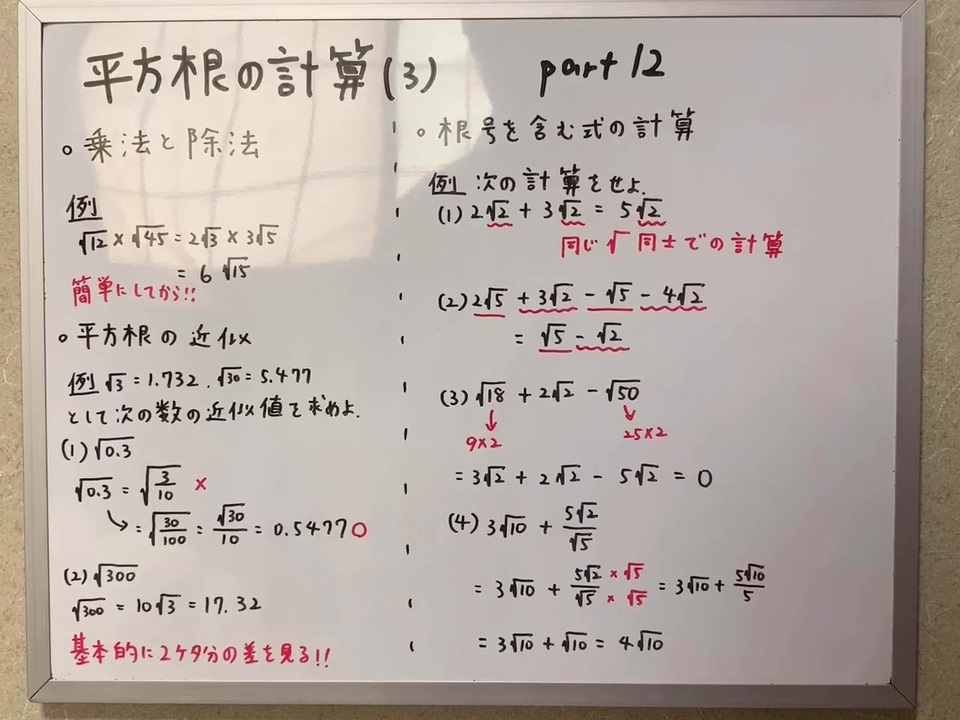 平方根の計算(3) part12
○ 乗法と除法
例
√12 × √45 = 2√3 × 3√5
= 6√15
簡単にしてから!!
○ 平方根の近似
例 √3 = 1.732 . √30 = 5.477
として次の数の近似値を求めよ.
(1) √0.3
√0.3 = √(3/10) ×
→ = √(30/100) = √30/10 = 0.5477 ○
(2) √300
√300 = 10√3 = 17.32
基本的に2ケタ分の差を見る!!
○ 根号を含む式の計算
例 次の計算をせよ.
(1) 2√2 + 3√2 = 5√2
同じ√同士での計算
(2) 2√5 + 3√2 - √5 - 4√2
= √5 - √2
(3) √18 + 2√2 - √50
9×2 25×2
= 3√2 + 2√2 - 5√2 = 0
(4) 3√10 + 5√2/√5
= 3√10 + 5√2/√5 ×√5/×√5 = 3√10 + 5√10/5
= 3√10 + √10 = 4√10